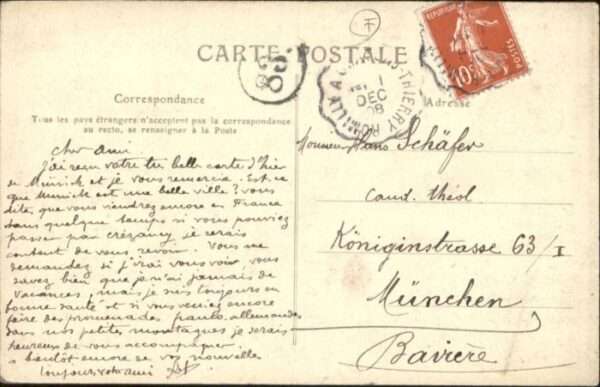 CARTE POSTALE
Correspondance
Tous les pays étrangers n'acceptent pas la correspondance
au recto, se renseigner à la Poste
Adresse
REPUBLIQUE
POSTES
10c
THIERRY
1
DEC
08
Cher ami.
J'ai reçu votre très belle carte d'hier
de Münich et je vous remercie. Est-ce
que Munich est une belle ville? vous
dite, que vous viendrez encore en France
dans quelque temps si vous pouviez
passer par crézancy je serais
content de vous revoir. Vous me
demandez si j'irai vous voir, vous
savez bien que je n'ai jamais de
vacances, mais je suis toujours en
bonne santé et si vous veniez encore
faire des promenades allemandes
dans nos petites montagnes je serais
heureux de vous accompagner.
a bientôt encore de vos nouvelle
toujours votre ami
Monsieur Hans Schäfer
cand. théol
Königinstrasse 63/I
München
Bavière